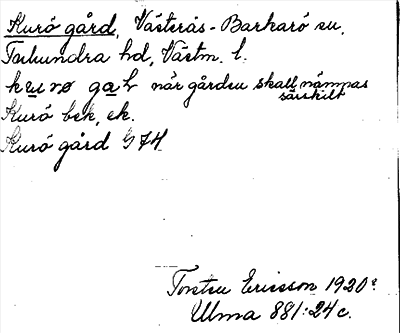 Kurö gård, Västerås-Barkarö sn,
Tuhundra hd, Västm. l.
kurø gaḷ när gården skall nämnas
särskilt
Kurö bek, ek.
Kurö gård G 74
Torsten Ericsson 1920
Ulma 881:24c.